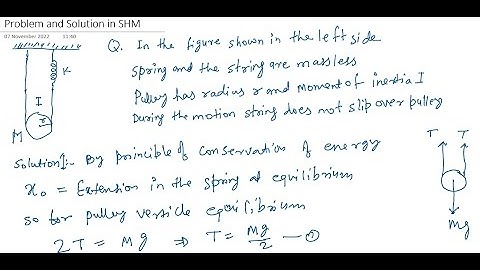 Problem and Solution in SHM
07 November 2022 11:40
Q. In the figure shown in the left side
spring and the string are massless
Pulley has radius r and moment of inertia I
During the motion string does not slip over pulley
K
I
r
M
Solution]:- By principle of conservation of energy
x₀ = Extension in the spring at equilibrium
so for pulley verticle equilibrium
2T = Mg ⇒ T = Mg/2 —①
T T
Mg